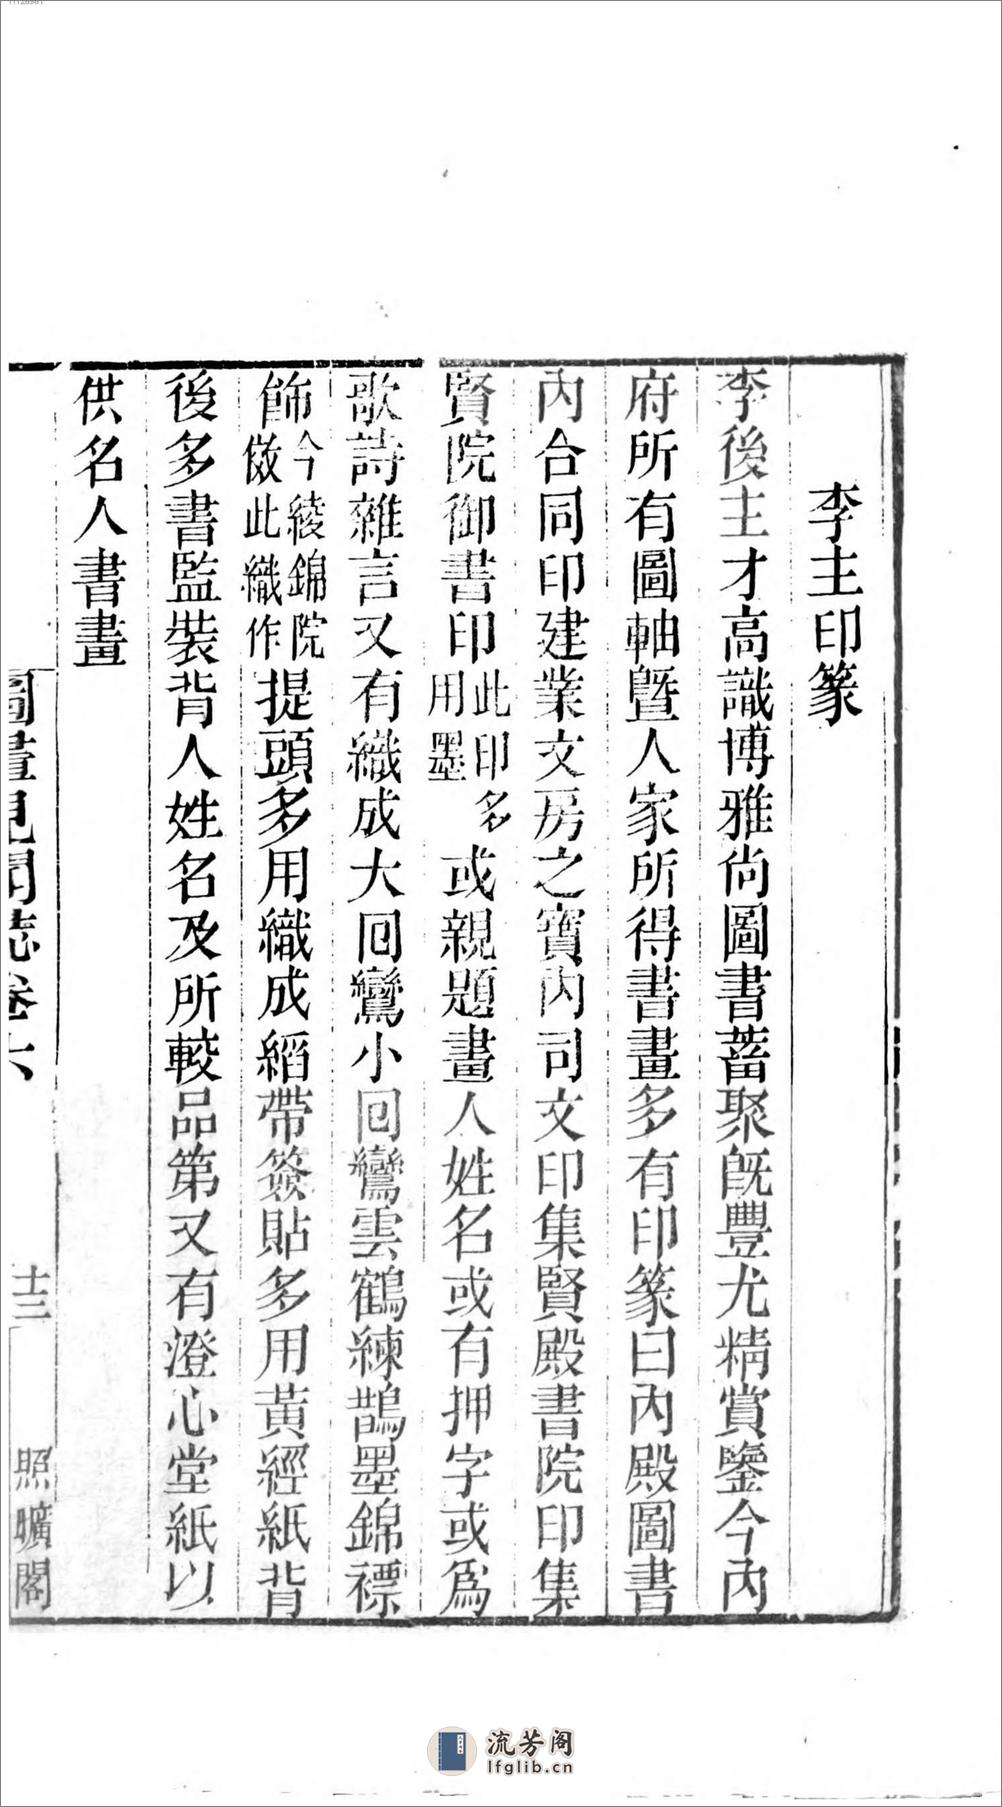 李主印篆
李後主才高識博雅尚圖書蓄聚旣豐尤精賞鑒今內
府所有圖軸曁人家所得書畫多有印篆曰內殿圖書
內合同印建業文房之寶內司文印集賢殿書院印集
賢院御書印此印多用墨或親題畫人姓名或有押字或爲
歌詩雜言又有織成大囘鸞小囘鸞雲鶴練鵲墨錦褾
飾今綾錦院倣此織作提頭多用織成縚帶簽貼多用黃經紙背
後多書監裝背人姓名及所較品第又有澄心堂紙以
供名人書畫
圖畫見聞誌卷六
十三
照曠閣
流芳阁
lfglib.cn